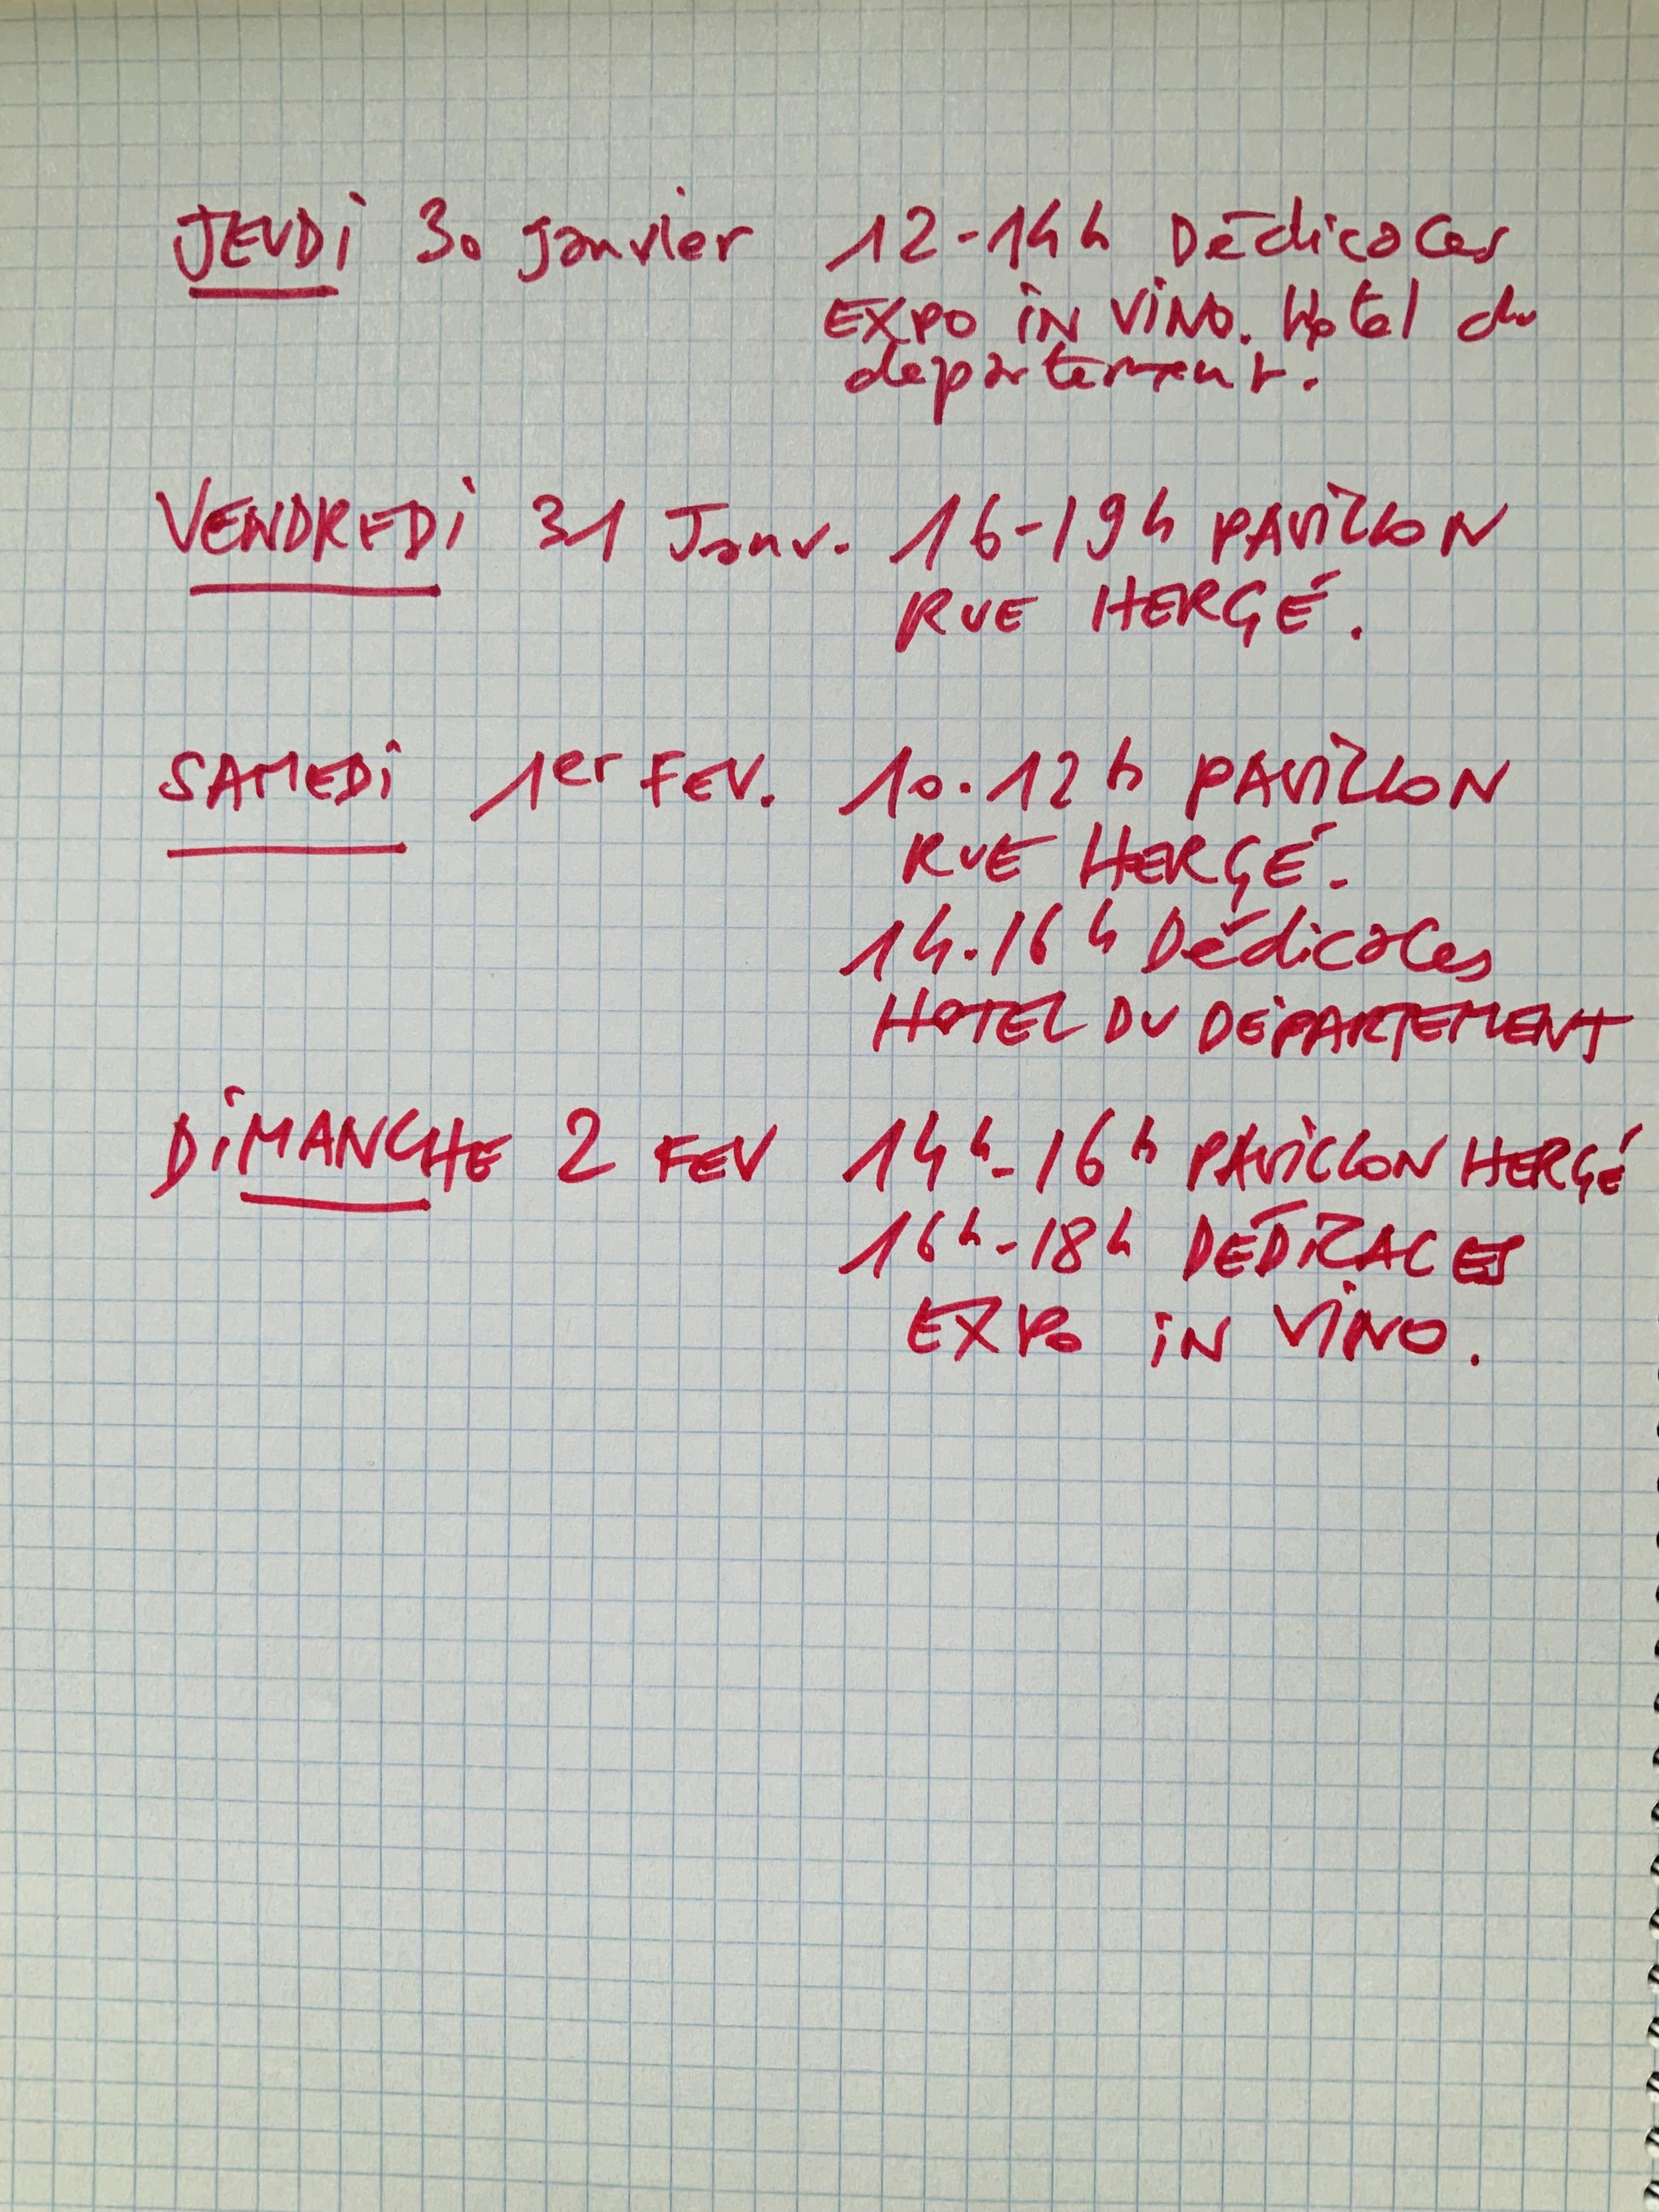 JEUDI 30 Janvier 12-14h Dédicaces
EXPO IN VINO. Hotel du
département.
VENDREDI 31 Janv. 16-19h PAVILLON
RUE HERGÉ.
SAMEDI 1er FEV. 10.12h PAVILLON
RUE HERGÉ.
14.16h Dédicaces
HOTEL DU DÉPARTEMENT
DIMANCHE 2 FEV 14h-16h PAVILLON HERGÉ
16h-18h DÉDICACES
EXPO IN VINO.